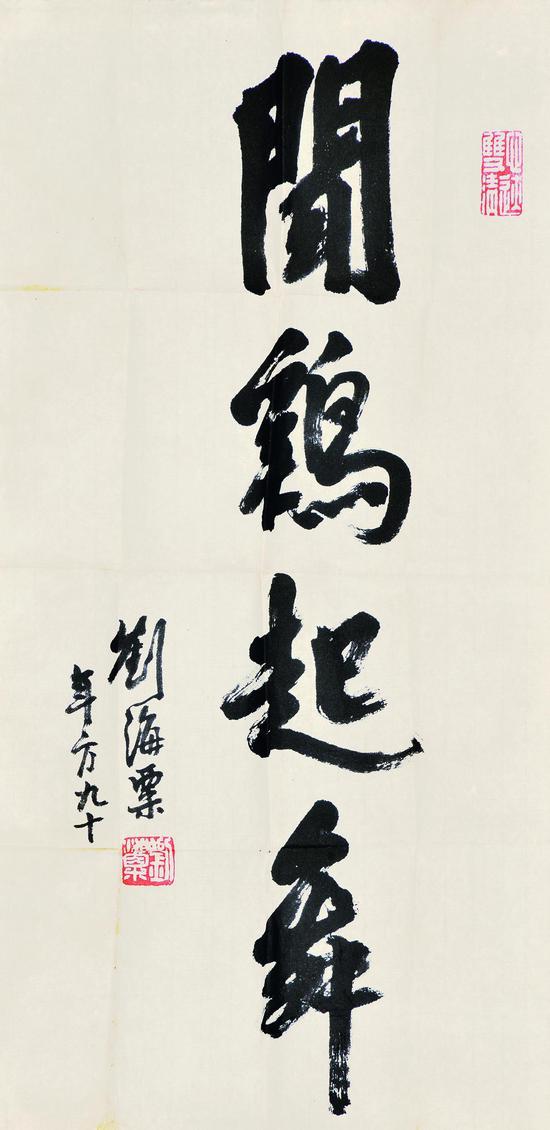 聞鷄起舞
劉海粟
年方九十